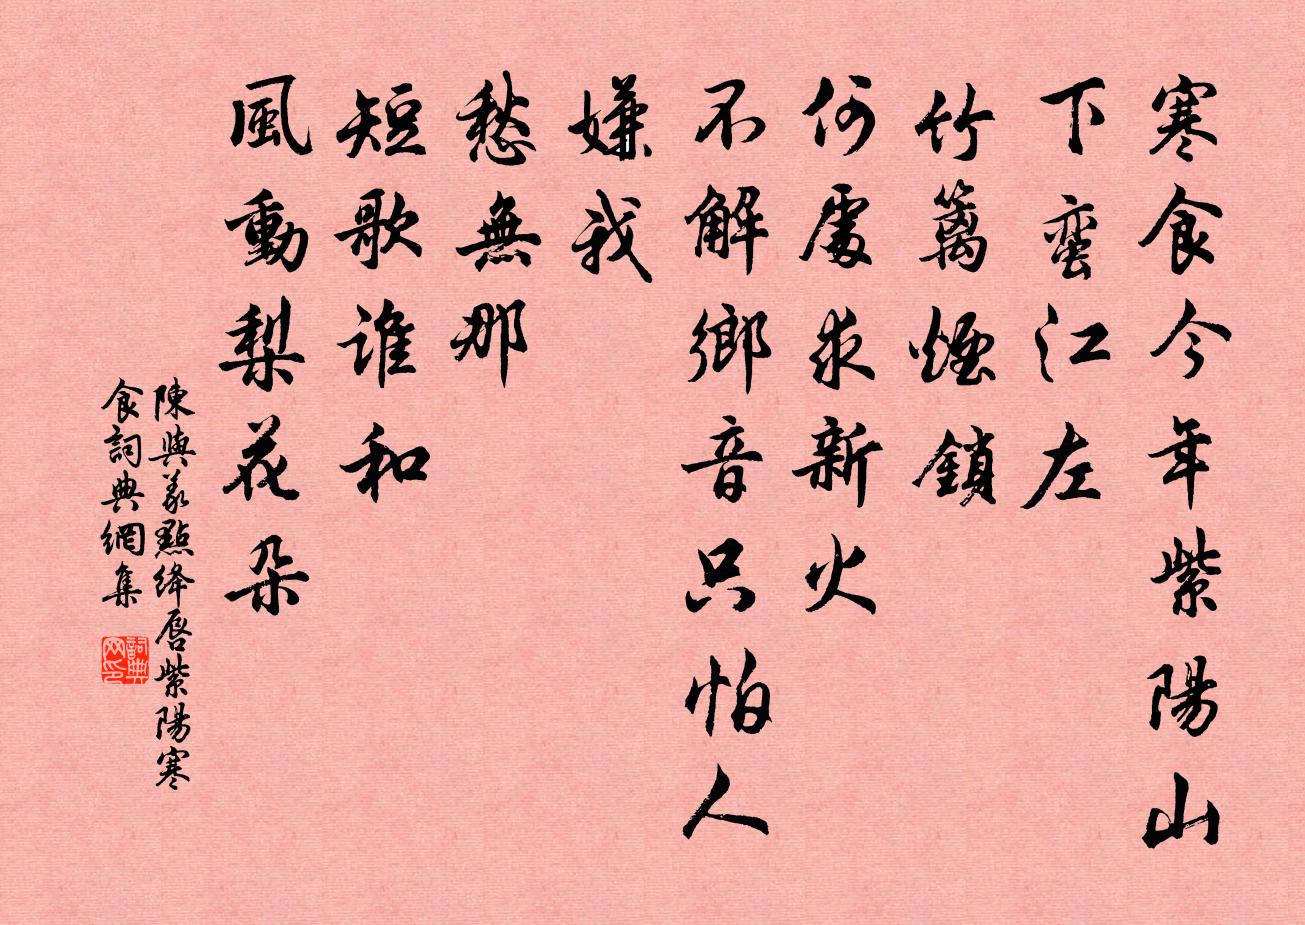 寒食今年紫陽山
下蛮江左
竹籬煙鎖
何處求新火
不解鄉音只怕人
嫌我
愁無那
短歌谁和
風動梨花朵
陳與義點绛唇紫陽寒
食詞典網集
詞典
网印